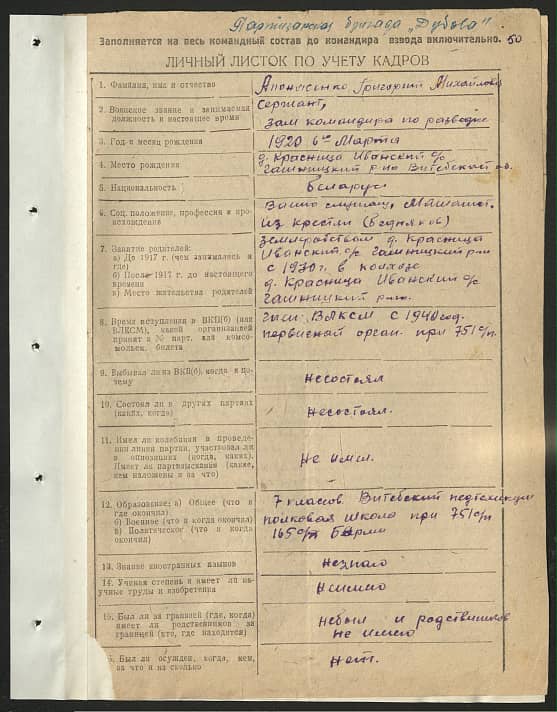 Партизанская бригада "Дубова"
Заполняется на весь командный состав до командира взвода включительно. 50
ЛИЧНЫЙ ЛИСТОК ПО УЧЕТУ КАДРОВ
1. Фамилия, имя и отчество
Григорий Михайлович
2. Воинское звание и занимаемая
должность в настоящее время
Сержант,
зам командира по разведке
3. Год и месяц рождения
1920 6го Марта
4. Место рождения
д. Красница Иванский с/с
Чашницкий р-на Витебской об.
5. Национальность
Беларус
6. Соц. положение, профессия и про-
исхождения
Военно служащ.
из крестьян (бедняков)
7. Занятие родителей:
а) До 1917 г. (чем занимались и
где)
б) После 1917 г. до настоящего
времени
в) Место жительства родителей
земляробством д. Красница
Иванский с/с Чашницкий р-на
с 1930 г. в колхозе
д. Красница Иванский с/с
Чашницкий р-на.
8. Время вступления в ВКП(б) (или
ВЛКСМ), какой организацией
принят и № парт. или комсо-
мольск. билета
член ВЛКСМ с 1940 год.
первисной орган. при 751 с/п.
9. Выбывал ли из ВКП(б), когда и по-
чему
несостоял
10. Состоял ли в других партиях
(каких, когда)
несостоял.
11. Имел ли колебания в проведе-
нии линии партии, участвовал ли
в оппозициях (когда, каких).
Имеет ли партвзыскания (какие,
кем наложены и за что)
не имел.
12. Образование: а) Общее (что и
где окончил)
б) Военное (что и когда окончил)
в) Политическое (что и когда
окончил)
7 класов. Витебский педтехникум
полковая школа при 751 с/п
165 с/д
13. Знание иностранных языков
незнаю
14. Ученая степень и имеет ли на-
учные труды и изобретения
неимею
15. Был ли за границей (где, когда)
имеет ли родственников за
границей (кто, где находятся)
небыл и родствиников
не имею
Был ли осужден, когда, кем,
за что и на сколько
нет.